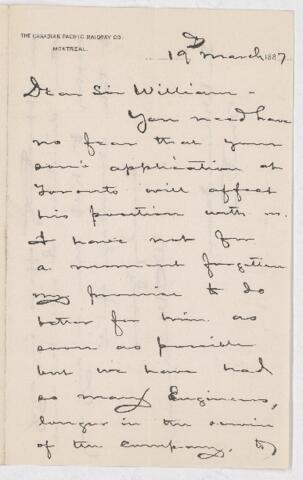 THE CANADIAN PACIFIC RAILWAY CO.
MONTREAL.
19th March 1887
Dear Sir William -
You need have
no fear that your
son's application at
Toronto will affect
his position with us.
I have not for
a moment forgotten
my promise to do
better for him as
soon as possible
but we have had
so many Engineers,
longer in the service
of the Company, to